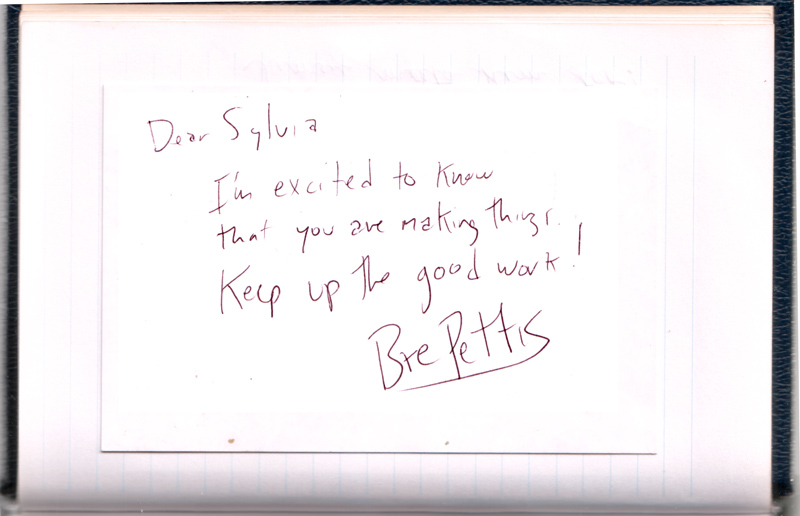 Dear Sylvia
I'm excited to know
that you are making things.
Keep up the good work!
Bre Pettis